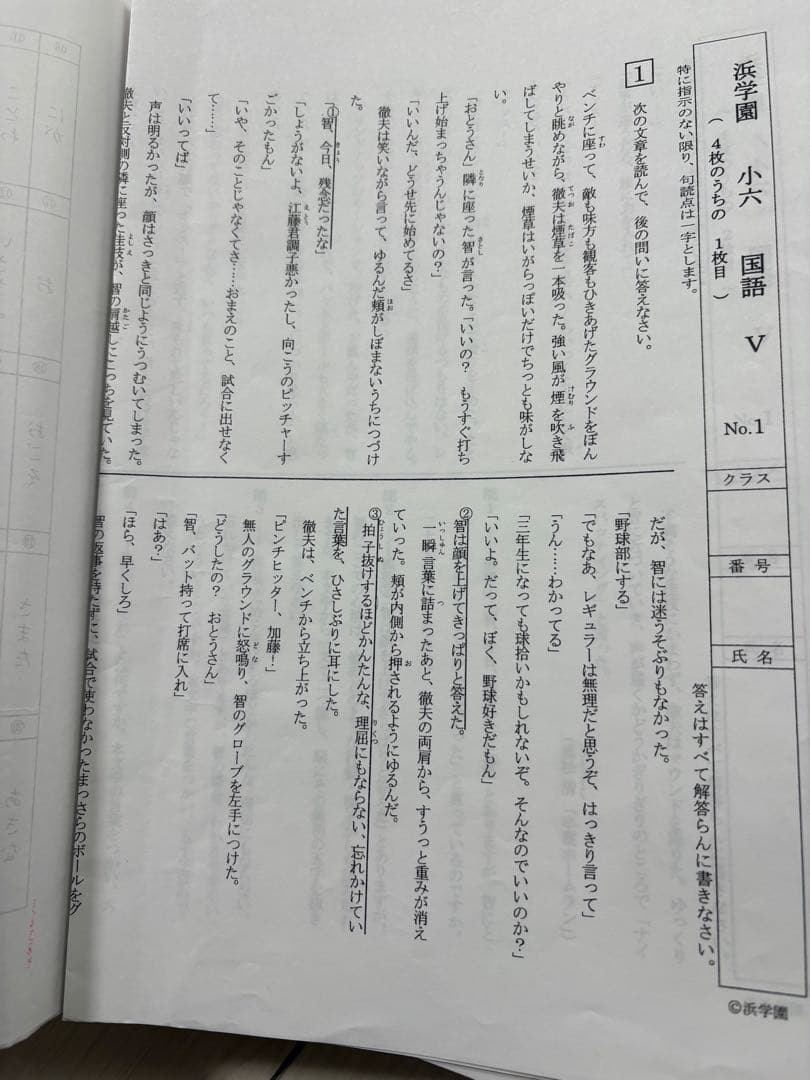 浜学園 小六 国語 Ⅴ No.1
( 4枚のうちの 1枚目 )
クラス
番号
氏名
特に指示のない限り、句読点は一字とします。
答えはすべて解答らんに書きなさい。
1 次の文章を読んで、後の問いに答えなさい。
ベンチに座って、敵も味方も観客もひきあげたグラウンドをぼん
やりと眺めながら、徹夫は煙草を一本吸った。強い風が煙を吹き飛
ばしてしまうせいか、煙草はいがらっぽいだけでちっとも味がしな
い。
「おとうさん」隣に座った智が言った。「いいの? もうすぐ打ち
上げ始まっちゃうんじゃないの?」
「いいんだ、どうせ先に始めてるさ」
徹夫は笑いながら言って、ゆるんだ頬がしぼまないうちにつづけ
た。
「①智、今日、残念だったな」
「しょうがないよ、江藤君調子悪かったし、向こうのピッチャーす
ごかったもん」
「いや、そのことじゃなくてさ……おまえのこと、試合に出せなく
て……」
「いいってば」
声は明るかったが、顔はさっきと同じようにうつむいてしまった。
徹夫と反対側の隣に座った佳枝が、智の肩越しにこっちを見ていた。
だが、智には迷うそぶりもなかった。
「野球部にする」
「でもなあ、レギュラーは無理だと思うぞ、はっきり言って」
「うん……わかってる」
「三年生になっても球拾いかもしれないぞ。そんなのでいいのか?」
「いいよ。だって、ぼく、野球好きだもん」
②智は顔を上げてきっぱりと答えた。
一瞬言葉に詰まったあと、徹夫の両肩から、すうっと重みが消え
ていった。頬が内側から押されるようにゆるんだ。
③拍子抜けするほどかんたんな、理屈にもならない、忘れかけてい
た言葉を、ひさしぶりに耳にした。
徹夫は、ベンチから立ち上がった。
「ピンチヒッター、加藤!」
無人のグラウンドに怒鳴り、智のグローブを左手につけた。
「どうしたの? おとうさん」
「智、バット持って打席に入れ」
「はあ?」
「ほら、早くしろ」
智の返事を待たずに、試合で使わなかったまっさらのボールをグ
©浜学園